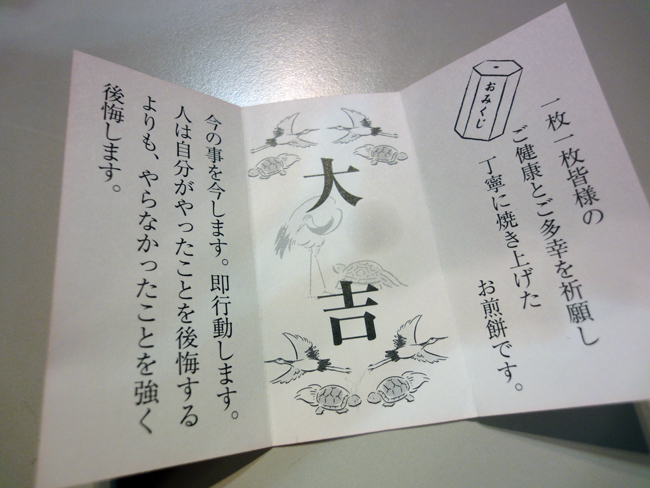 おみくじ
一枚一枚皆様の
ご健康とご多幸を祈願し
丁寧に焼き上げた
お煎餅です。
大吉
今の事を今します。即行動します。
人は自分がやったことを後悔する
よりも、やらなかったことを強く
後悔します。